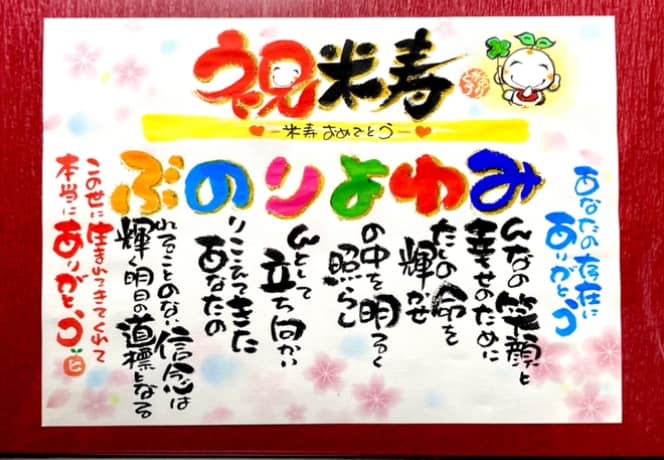 祝米寿
米寿おめでとう
あなたの存在に
ありがとう
み
んなの笑顔と
幸せのために
ゆ
命を
輝かせ
よ
の中を明るく
照らし
り
んとして
立ち向かい
の
りこえてきた
あなたの
ぶ
れることのない信念は
輝く明日の道標となる
この世に生まれてきてくれて
本当にありがとう